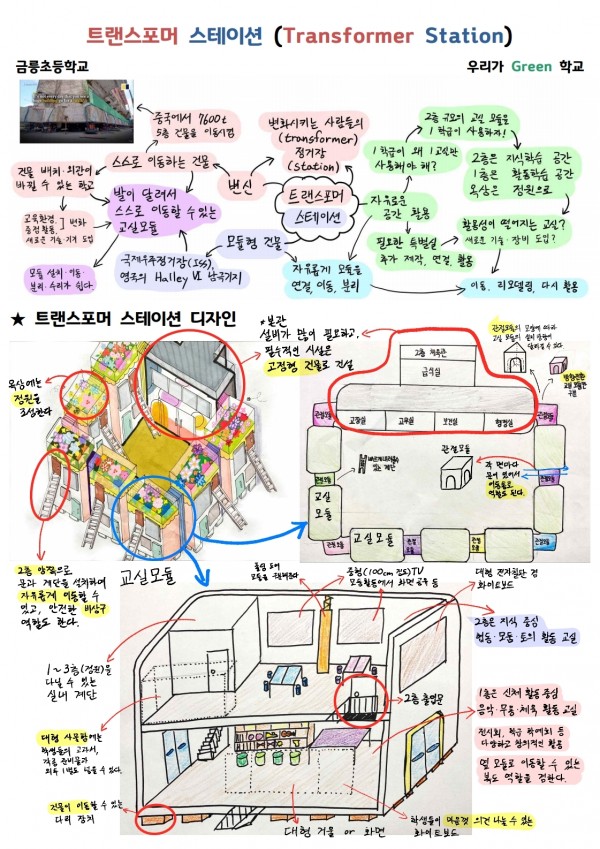 트랜스포머 스테이션 (Transformer Station)
금릉초등학교
우리가 Green 학교
중국에서 7600t
5층 건물을 이동시킴
스스로 이동하는 건물
건물 배치·외관이
바뀔 수 있는 학교
교육환경,
중점활동,
새로운 기술·기기 도입
변화
발이 달려서
스스로 이동할 수 있는
교실모듈
모듈 설치·이동·
분리·수리가 쉽다.
변신
변화시키는 사람들의
(transformer)
정거장
(Station)
트랜스포머
스테이션
모듈형 건물
국제우주정거장(ISS),
영국의 Halley VI 남극기지
자유롭게 모듈을
연결, 이동, 분리
자유로운
공간 활용
1학급이 왜 1교실만
사용해야 해?
2층 규모의 교실 모듈을
1학급이 사용하자!
2층은 지식학습 공간
1층은 활동학습 공간
옥상은 정원으로
필요한 특별실
추가 제작, 연결, 활용
활용성이 떨어지는 교실?
새로운 기술·장비 도입?
이동, 리모델링, 다시 활용
★ 트랜스포머 스테이션 디자인
옥상에는
정원을
조성한다
*본관
설비가 많이 필요하고,
필수적인 시설은
고정형 건물로 건설
2층 체육관
급식실
교장실
교무실
보건실
행정실
관절모듈
관절모듈
교실
모듈
교실모듈
관절모듈
각 면마다
문이 있어서
이동통로
역할도 된다.
2층 양쪽으로
문과 계단을 설치하여
자유롭게 이동할 수
있고, 안전한 비상구
역할도 한다.
교실모듈
중형(100cm 정도)TV
모둠활동에서 화면 공유 등
대형 전자칠판 겸
화이트보드
2층은 지식 중심
협동·모둠·토의 활동 교실
1~3층(정원)을
다닐 수 있는
실내 계단
2층 출입문
1층은 신체 활동 중심
음악·무용·체육 활동 교실
전시회, 학급 학예회 등
다양하고 창의적인 활동
옆 모듈로 이동할 수 있는
복도 역할을 겸한다.
대형 사물함에는
학생들의 교과서,
건물이 이동할 수 있는
다리 장치
대형 거울 or 화면
학생들이 마음껏 의견 나눌 수 있는
화이트보드